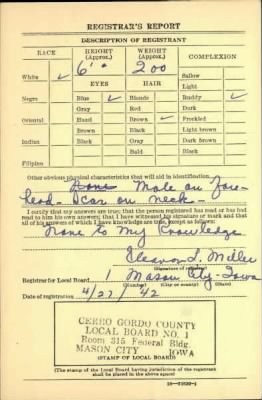 REGISTRAR'S REPORT
DESCRIPTION OF REGISTRANT
RACE HEIGHT (Approx.) WEIGHT (Approx.) COMPLEXION
6' 200
White ✓ Sallow
EYES HAIR Light
Negro Blue ✓ Blonde Ruddy ✓
Gray Red Dark
Oriental Hazel Brown ✓ Freckled
Brown Black Light brown
Indian Black Gray Dark brown
Bald Black
Filipino
Other obvious physical characteristics that will aid in identification
Mole on fore-
head - Scar on neck -
I certify that my answers are true; that the person registered has read or has had
read to him his own answers; that I have witnessed his signature or mark and that
all of his answers of which I have knowledge are true, except as follows:
None to my knowledge
Eleanor L. Miller
(Signature of registrar)
Registrar for Local Board 1 Mason City - Iowa
(Number) (City or county) (State)
Date of registration 4/27/42
CERRO GORDO COUNTY
LOCAL BOARD NO. 1
Room 315 Federal Bldg.
MASON CITY IOWA
(STAMP OF LOCAL BOARD)
(The stamp of the Local Board having jurisdiction of the registrant
shall be placed in the above space)